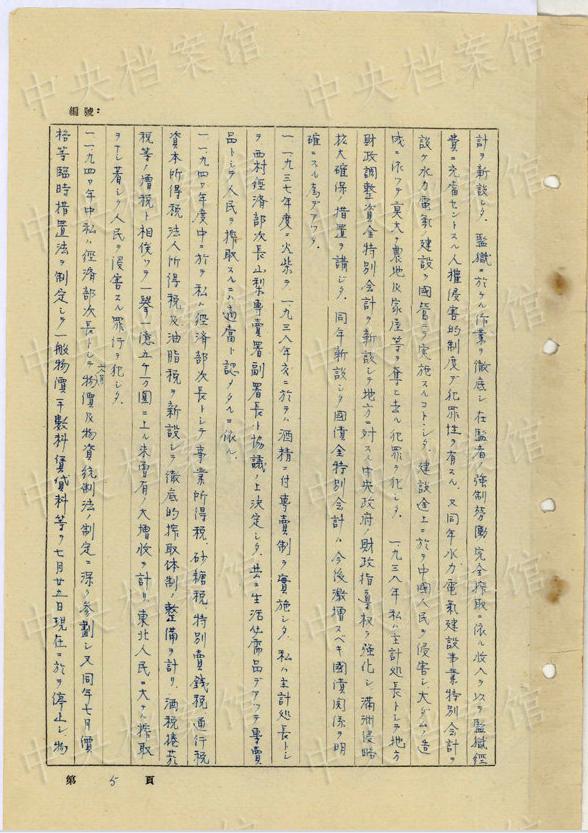 中央档案馆
編號：
計ヲ新設シタ。監獄ニ於ケル作業ヲ徹底シ在監者ノ強制勞働完全搾取ニ依ル收入ヲ以テ監獄經
費ニ充當セントスル人權侵害的制度デ犯罪性ヲ有スル。又同年水力電氣建設事業特別会計ヲ
設ケ水力電氣ノ建設ヲ國營ニテ実施スルコトトシタ。建設途上ニ於テ中國人民ヲ侵害シ大ダムノ造
成ニ依ツテ莫大ナ農地及家屋等ヲ奪ヒ去ル犯罪ヲ犯シタ。一九三八年私ハ主計処長トシテ地方
財政調整資金特別会計ヲ新設シテ地方ニ対スル中央政府ノ財政指導权ヲ強化シ滿洲侵略
拡大確保ノ措置ヲ講ジタ。同年新設シタ國債金特別会計ハ今後激增スベキ國債関係ヲ明
確ニスル為デアツタ。
一一九三七年度ニ火柴ヲ一九三八年次ニ於テハ酒精ニ付專賣制ヲ實施シタ。私ハ主計処長トシ
テ西村經済部次長山梨專賣署副署長ト協議ノ上決定シタ。共ニ生活必需品デアツテ專賣
品トシテ人民ヲ搾取スルニハ適當ト認メタルニ依ル。
一一九四〇年度中ニ於テ私ハ經済部次長トシテ事業所得税、砂糖税、特別賣錢税、通行税
資本所得税法人所得税及油脂税ヲ新設シテ徹底的搾取体制ノ整備ヲ計リ、酒税捲菸
税等ノ增税ト相俟ツテ一舉一億五千万圓ニ上ル未曾有ノ大增收ヲ計リ東北人民ニ大ナル搾取
ヲナシ著シク人民ヲ侵害スル罪行ヲ犯シタ。
一一九四〇年中私ハ經済部次長トシテ物價及物資統制法ノ制定ニ深ク参劃シ又同年七月價
六月
格等臨時措置法ヲ制定シテ一般物價手數料賃貸料等ヲ七月廿五日現在ニ於テ停止シ物
第 5 頁